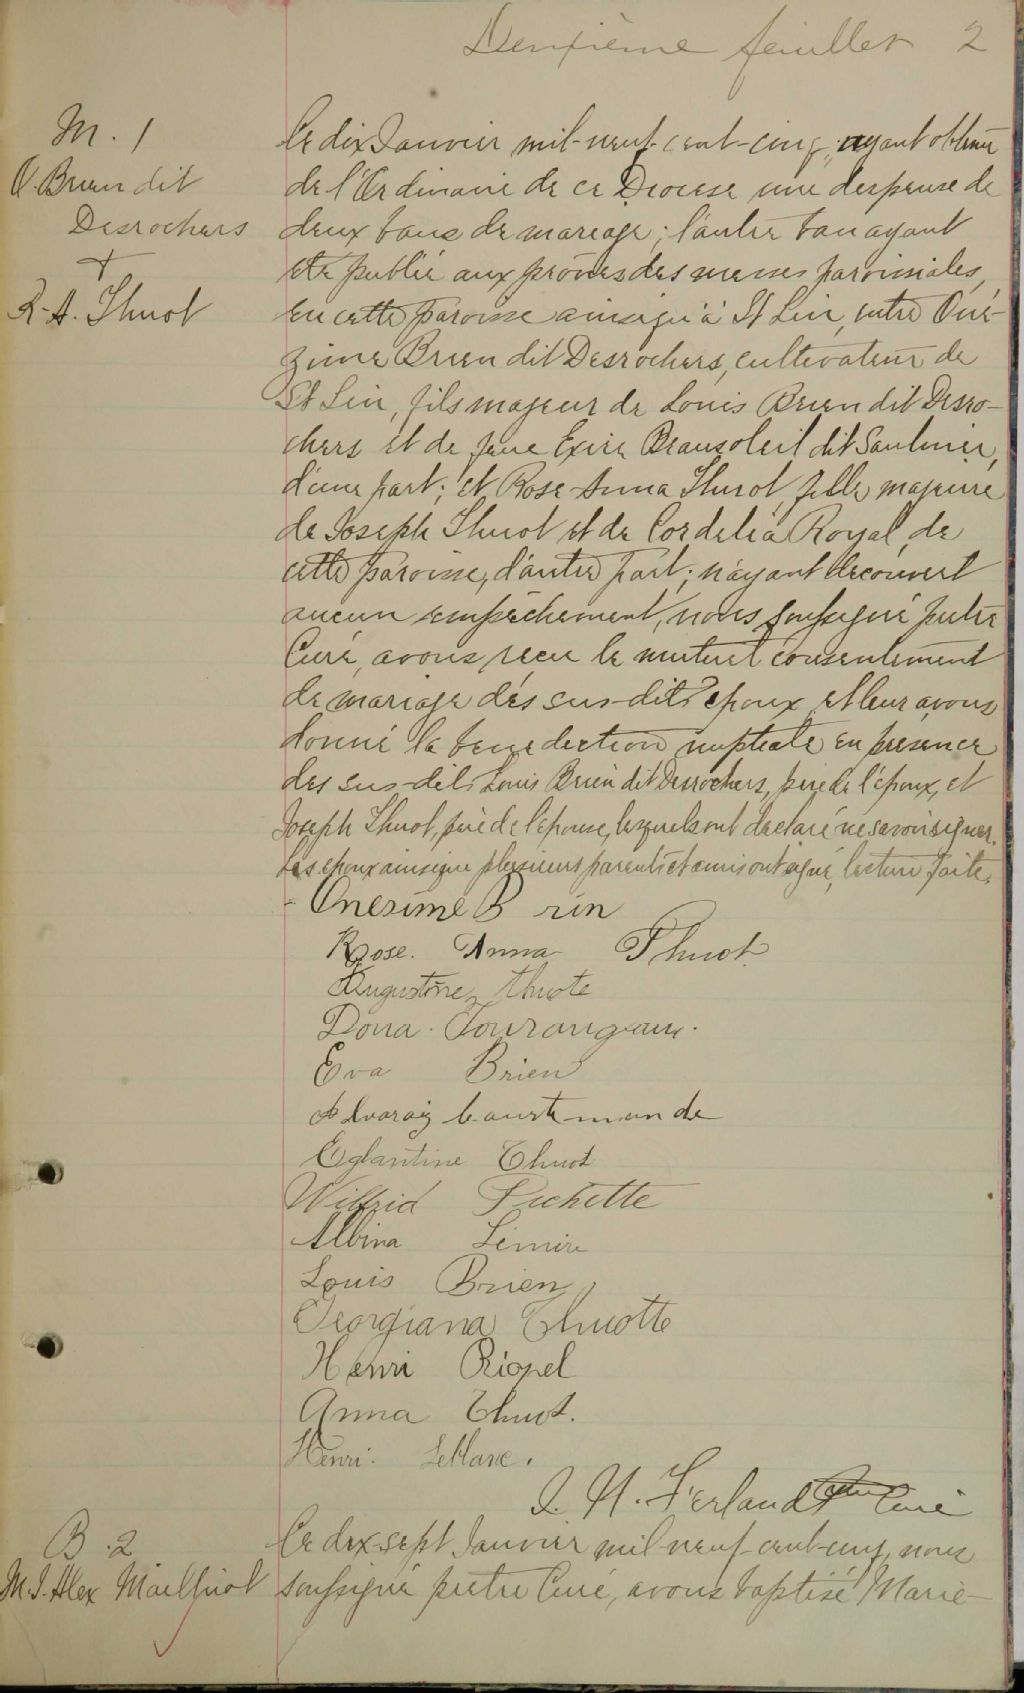 Deuxième feuillet 2
M. 1
O. Brien dit
Desrochers
+
R-A. Thuot
Le dix Janvier mil-neuf-cent-cinq, ayant obtenu
de l'Ordinaire de ce Diocese une despense de
deux bans de mariage; l'autre ban ayant
été publié aux prônes des messes paroissiales,
en cette paroisse ainsiqu'à St Lin, entre Oné-
zime Brien dit Desrochers, cultivateur de
St Lin, fils majeur de Louis Brien dit Desro-
chers et de feue Exire Beausoleil dit Saulnier,
d'une part; et Rose-Anna Thuot, fille majeure
de Joseph Thuot et de Cordelia Royal, de
cette paroisse, d'autre part; n'ayant decouvert
aucun empêchement, nous soussigné prêtre
Curé, avons reçu le mutuel consentement
de mariage dés sus-dits époux et leur avons
donné la bénédiction nuptiale en présence
des sus-dits Louis Brien dit Desrochers, père de l'époux, et
Joseph Thuot, père de l'épouse, lesquels ont déclaré ne savoir signer.
Les époux ainsique plusieurs parents et amis ont signé, lecture faite.
Onesime B rin
Rose. Anna Thuot
Augustine Thuote
Dona. Tourangeau.
Eva Brien
Eglantine Thuot
Wilfrid Pichette
Albina Lemire
Louis Brien
Georgiana Thuotte
Henri Riopel
Anna Thuot.
Henri. Leblanc.
J. H. Ferland Curé
B. 2
M. J. Alex Mailhiot
Le dix-sept Janvier mil-neuf-cent-cinq, nous
soussigné prêtre Curé, avons baptisé Marie-